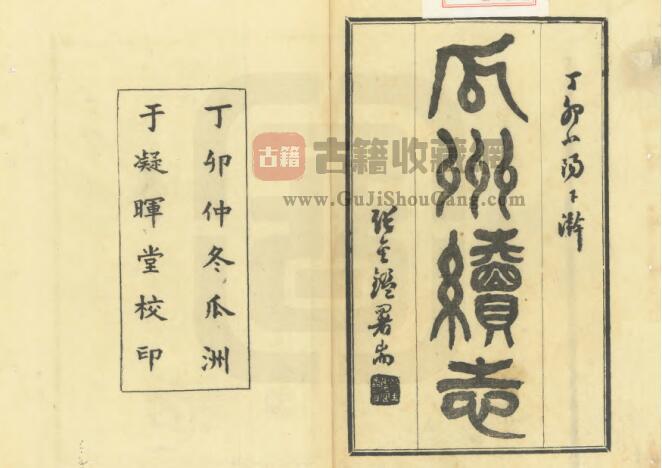 丁卯小陽下澣
瓜州續志
張金鑑署耑
丁卯仲冬瓜洲
于凝暉堂校印
古籍
古籍收藏網
www.GuJiShouCang.com